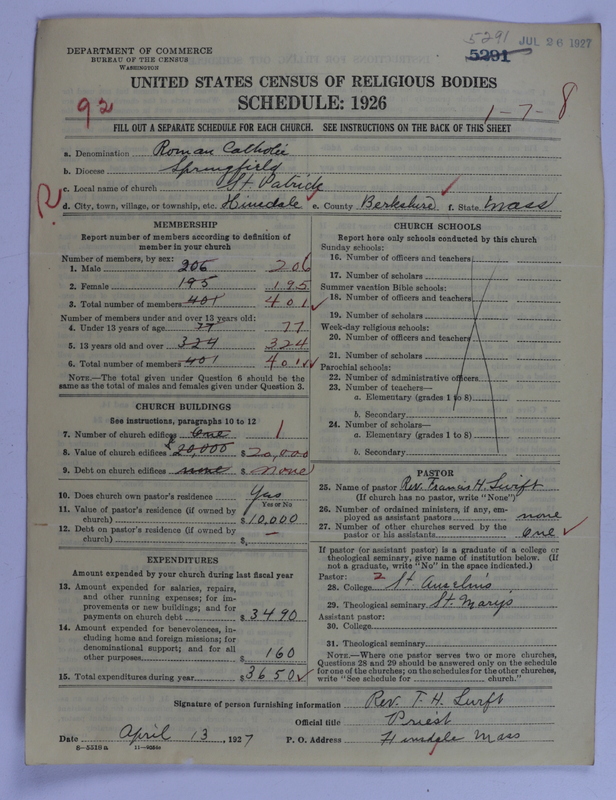 5291 JUL 26 1927
5291
DEPARTMENT OF COMMERCE
BUREAU OF THE CENSUS
WASHINGTON
UNITED STATES CENSUS OF RELIGIOUS BODIES
SCHEDULE: 1926
92
1-7-8
FILL OUT A SEPARATE SCHEDULE FOR EACH CHURCH. SEE INSTRUCTIONS ON THE BACK OF THIS SHEET
a. Denomination Roman Catholic
b. Diocese Springfield
c. Local name of church St Patrick
d. City, town, village, or township, etc. Hinsdale e. County Berkshire f. State Mass
MEMBERSHIP
Report number of members according to definition of
member in your church
Number of members, by sex:
1. Male 206 206
2. Female 195 195
3. Total number of members 401 401
Number of members under and over 13 years old:
4. Under 13 years of age 77 77
5. 13 years old and over 324 324
6. Total number of members 401 401
NOTE.—The total given under Question 6 should be the
same as the total of males and females given under Question 3.
CHURCH BUILDINGS
See instructions, paragraphs 10 to 12
7. Number of church edifices One 1
8. Value of church edifices $20,000 $20,000
9. Debt on church edifices none $None
10. Does church own pastor's residence Yes
Yes or No
11. Value of pastor's residence (if owned by
church) $10,000
12. Debt on pastor's residence (if owned by
church) $ —
EXPENDITURES
Amount expended by your church during last fiscal year
13. Amount expended for salaries, repairs,
and other running expenses; for im-
provements or new buildings; and for
payments on church debt $3490
14. Amount expended for benevolences, in-
cluding home and foreign missions; for
denominational support; and for all
other purposes 160
15. Total expenditures during year $3650
CHURCH SCHOOLS
Report here only schools conducted by this church
Sunday schools:
16. Number of officers and teachers
17. Number of scholars
Summer vacation Bible schools:
18. Number of officers and teachers
19. Number of scholars
Week-day religious schools:
20. Number of officers and teachers
21. Number of scholars
Parochial schools:
22. Number of administrative officers
23. Number of teachers—
a. Elementary (grades 1 to 8)
b. Secondary
24. Number of scholars—
a. Elementary (grades 1 to 8)
b. Secondary
PASTOR
25. Name of pastor Rev. Francis H. Swift
(If church has no pastor, write "None")
26. Number of ordained ministers, if any, em-
ployed as assistant pastors none
27. Number of other churches served by the
pastor or his assistants One
If pastor (or assistant pastor) is a graduate of a college or
theological seminary, give name of institution below. (If
not a graduate, write "No" in the space indicated.)
Pastor: 2
28. College St. Anselm's
29. Theological seminary St. Mary's
Assistant pastor:
30. College
31. Theological seminary
NOTE.—Where one pastor serves two or more churches,
Questions 28 and 29 should be answered only on the schedule
for one of the churches; on the schedules for the other churches,
write "See schedule for church."
Signature of person furnishing information Rev. F. H. Swift
Official title Priest
Date April 13, 1927 P. O. Address Hinsdale Mass
8—5518 a